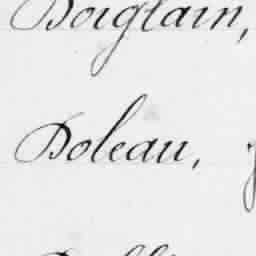 Boiglain,
Boleau,